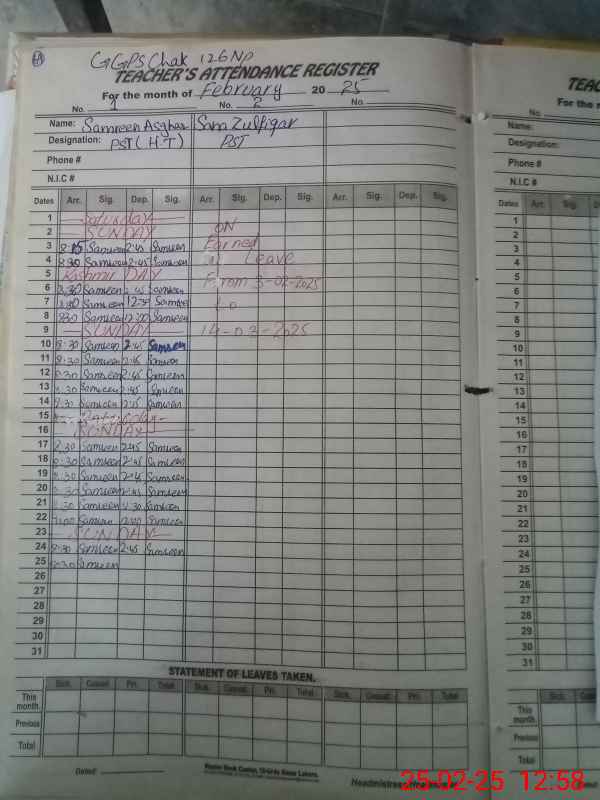 GGPS Chak 126NP
TEACHER'S ATTENDANCE REGISTER
For the month of February 2025
No. 1 No. 2 No.
Name: Samreen Asghar Sana Zulfiqar
Designation: PST (H.T) PST
Phone #
N.I.C #
Dates Arr. Sig. Dep. Sig. Arr. Sig. Dep. Sig. Arr. Sig. Dep. Sig.
1 Saturday
2 SUNDAY ON
3 8:15 Samreen 2:45 Samreen Earned
4 8:30 Samreen 2:45 Samreen Leave
5 Kashmir DAY From 3-02-2025
6 8:30 Samreen 2:45 Samreen
7 8:30 Samreen 12:30 Samreen to
8 830 Samreen Samreen
9 SUNDAY 14-03-2025
10 8:30 Samreen 2:45 Samreen
11 8:30 Samreen 2:45 Samreen
12 8:30 Samreen 2:45 Samreen
13 8:30 Samreen 2:45 Samreen
14 8:30 Samreen 2:45 Samreen
15
16 SUNDAY
17 8:30 Samreen 2:45 Samreen
18 8:30 Samreen 2:45 Samreen
19 8:30 Samreen 2:45 Samreen
20 8:30 Samreen 2:45 Samreen
21 8:30 Samreen Samreen
22 Samreen Samreen
23 SUNDAY
24 8:30 Samreen 2:45 Samreen
25 8:30 Samreen
26
27
28
29
30
31
STATEMENT OF LEAVES TAKEN.
Sick. Casual. Pri. Total Sick. Casual. Pri. Total Sick. Casual. Pri. Total
This month.
Previous
Total
Dated:
Headmistress/Headmaster
TEAC
For the m
No.
Name:
Designation:
Phone #
N.I.C #
Dates Arr. Sig. D
1
2
3
4
5
6
7
8
9
10
11
12
13
14
15
16
17
18
19
20
21
22
23
24
25
26
27
28
29
30
31
Sick. Casua
This month.
Previous
Total
Dated
25-02-25 12:58